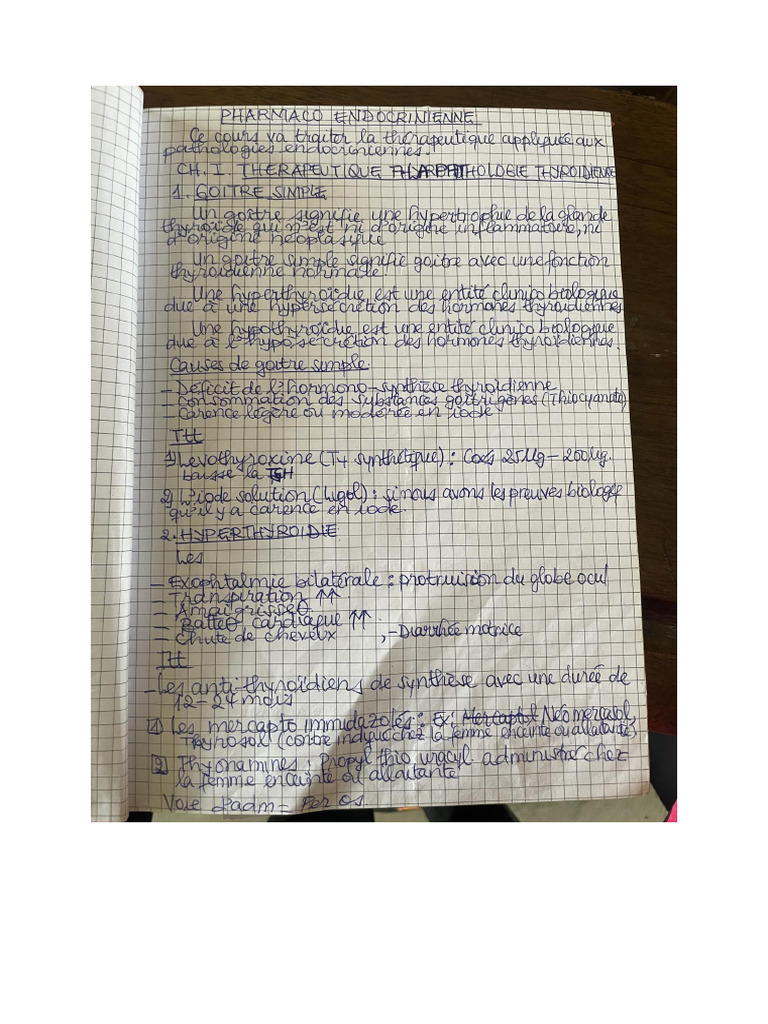 PHARMACO ENDOCRINIENNE
Ce cours va traiter la therapeutique appliquée aux
pathologies endocriniennes.
CH.I. THERAPEUTIQUE PATHOLOGIE THYROIDIENNE
1. GOITRE SIMPLE
Un goitre signifie une hypertrophie de la glande
thyroïde qui n'est ni d'origine inflammatoire, ni
d'origine néoplasique
Un goitre simple signifie goitre avec une fonction
thyroïdienne normale.
Une hyperthyroïdie est une entité clinico biologique
due à une hypersecrétion des hormones thyroïdiennes
Une hypothyroïdie est une entité clinico biologique
due à l'hyposecrétion des hormones thyroïdiennes
Causes de goitre simple.
- Déficit de l'hormono-synthèse thyroïdienne
- Consommation des substances goitrigènes (Thiocyanate)
- Carence légère ou moderée en iode
Ttt
1) Levothyroxine (T4 synthétique) : 25µg - 200µg.
baisse la TSH
2) L'iode solution (lugol) : si nous avons les preuves biologq
qu'il y a carence en iode.
2. HYPERTHYROIDIE
Les
- Exophtalmie bilatérale : protrusion du globe ocul
- Transpiration ↑↑
- Amaigrisset
- Battet cardiaque ↑↑
- Chute de cheveux ; - Diarrhée motrice
Ttt
- Les anti-thyroïdiens de synthèse avec une durée de
12 - 24 mois
1 Les mercapto immidazolés : Ex: Mercaptol Néomercasol,
Thyrosol (contre indiqué chez la femme enceinte ou allaitante)
2 Thyonamines : Propyl thio uracyl administré chez
la femme enceinte ou allaitante
Voie d'adm = Per os.